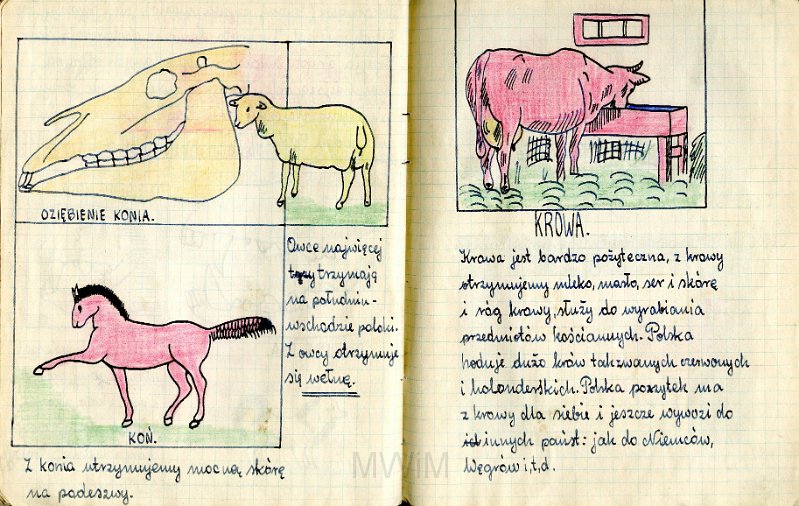 OZIĘBIENIE KONIA.
Owce najwięcej
trzymają
na południu-
wschodzie polski.
Z owcy otrzymuje
się wełnę.
KOŃ.
Z konia utrzynujemy mocną, skórę
na podeszwy.
KROWA.
Krawa jest bardzo pożyteczna, z krowy
otrzymujemy mleko, masło, ser i skórę
i róg krowy, służy do wyrabiania
przedmiotów kościannych. Polska
hoduje dużo krów takzwanych czerwonych
i holenderskich. Polska pożytek ma
z krowy dla siebie i jeszcze wywozi do
innych państ: jak do Niemców,
Węgrów i,t,d.
MWiM